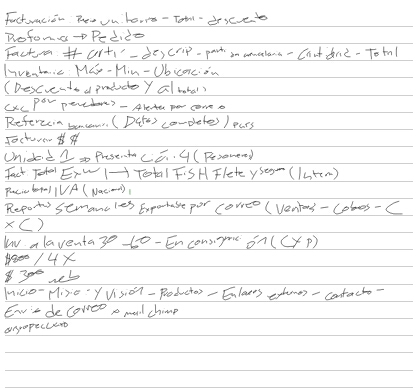 Facturación Precio unitario - Total - descuento
Proforma → Pedido
Factura # arti - descrip - parti on arancelaria - Cantidad - Total
Inventario Máx - Min - Ubicación
(Descuento al producto y al total)
CXC por proveedores - Alertas por correo
Referencia bancaria (Datos completos) pers
Facturar $ $
Unidad 1 → Presenta ción 4 (Resonered)
Fact Total Exw 1→ Total FISH Flete y seguro (Intern)
Precio total IVA (Nacional)
Reportes Semanales Exportarse por correo (Ventas - Cobros - C
x C)
Inv a la venta 30 - 60 - En consignación (CXP)
$800 / 4 X
$ 300 web
Inicio - Misio - y Visión - Productos - Enlaces externos - contacto -
Envio de correo x mail chimp